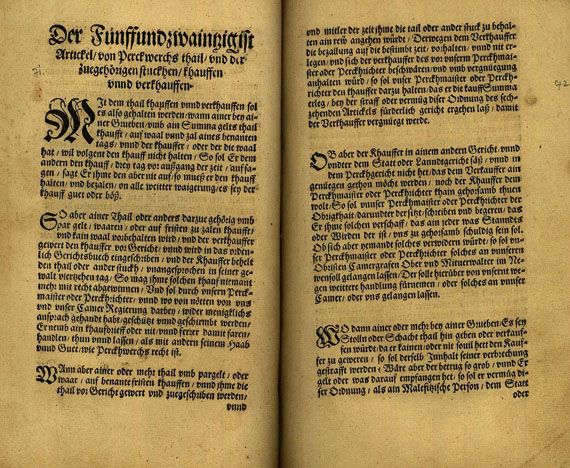 Der Fünffundzwaintzigist
Artickel / von Perckwercks thail / vnd der
zuegehörigen stuckhen / khauffen
vnnd verkhauffen.
Mit dem thail khauffen vnnd verkhauffen sol
es also gehalten werden / wann ainer bey ai-
ner Grueben vmb ain Summa gelts thail
khaufft / auf waal vnd zal aines benanten
tags / vnnd der khauffer / oder der die waal
hat / wil volgent den khauff nicht halten / So sol Er dem
andern den khauff / drey tag vor außgang der zeit / auf sa-
gen / sagt Er ihme den aber nit auf / so mueß er den khauff
halten / vnd bezalen / on alle weitter waigerung / es sey der
khauff guet oder böß.
SO aber ainer Thail oder anders darzue gehörig vmb
par gelt / waaren / oder auf fristen zu zalen khauffet /
vnd kain waal vorbehalten wird / vnd der verkhauffer
gewert den khauffer vor Gericht / vnnd wird in das orden-
lich Gerichtsbuech eingeschriben / vnd der Khauffer behelt
den thail oder ander stuckh / vnangesprochen in seiner ge-
walt viertzehen tag / So mag ihme solchen khauf niemant
mehr mit recht abgewinnen / Vnd sol durch vnsern Perck-
maister oder Perckhrichter / vnnd wo von nötten von vns
vnd vnser Camer Regierung darbey / wider menigklichs
ansprach gehandt habt / geschützt vnd geschirmbt werden /
Er nemb ain khaufbrieff oder nit vnnd ferner damit faren /
handlen / thun vnnd lassen / als mit andern seinem Haab
vnnd Guet / wie Perckhwerchs recht ist.
WAnn aber ainer oder mehr thail vmb pargelt / oder
waar / auf benante fristen khauffen / vnnd ihme die
thail vor Gericht gewert vnd zuegeschriben werden /
vnnd
vnd mitler der zeit ihme die tail oder ander stuck zu behal-
ten ain rew angehen würdt / Derwegen dem Verkhauffer
die bezallung auf die bestimbt zeit / vorhalten / vnnd nit er-
legen / vnd sich der verkhauffer des vor vnserm Perckhmai-
ster oder Perckhrichter beschwären / vnd vmb vergnüegung
anhalten würde / so sol vnser Perckhmaister oder Perckh-
richter den khauffer darzu halten / das er die kauffSumma
erleg / bey der straff oder vermüg diser Ordnung des sech-
zehenden Artickels fürderlich gericht ergehen laß / damit
der Verkhauffer vergnüegt werde.
OB aber der Khauffer in ainem andern Gericht / vnnd
vndter dem Statt oder Lanndtgericht säß / vnnd in
dem Perckhgericht nicht het / das dem Verkauffer ain
genüegen gethon möcht werden / noch der Khauffer dem
Perckhmaister oder Perckhrichter khain gehorsamb thuen
wolt / So sol vnnser Perckhmaister oder Perckhrichter der
Obrigkhait / darundter der sitzt / schreiben vnd begeren / das
Er ihme solchen verschaff / das ain jeder was Stanndts
oder Wirden der ist / vns zu gehorsamb schuldig sein sol.
Ob sich aber yemand solches verwidern würde / so sol vn-
ser Perckhmaister oder Perckhrichter solches an vnnseren
Obristen Camergrafen Ober vnd Mitterwalter im Ne-
wensol gelangen lassen / Der solle hierüber von vnsernt we-
gen weittere handlung fürnemen / oder solches an vnnser
Camer / oder vns gelangen lassen.
WO dann ainer oder mehr bey ainer Grueben / Es sey
Stolln oder Schacht thail hin geben oder verkauf-
fen würde / da er kainen / oder nit souil hett den Kauf-
fer zu geweren / so sol derselb Innhalt seiner verbrechung
gestrafft werden / Wäre aber der betrug so grob / vnd Er
gelt oder was darauf empfangen het / so sol er vermüg di-
ser Ordnung / als ain Malefitzische Person / dem Statt
oder